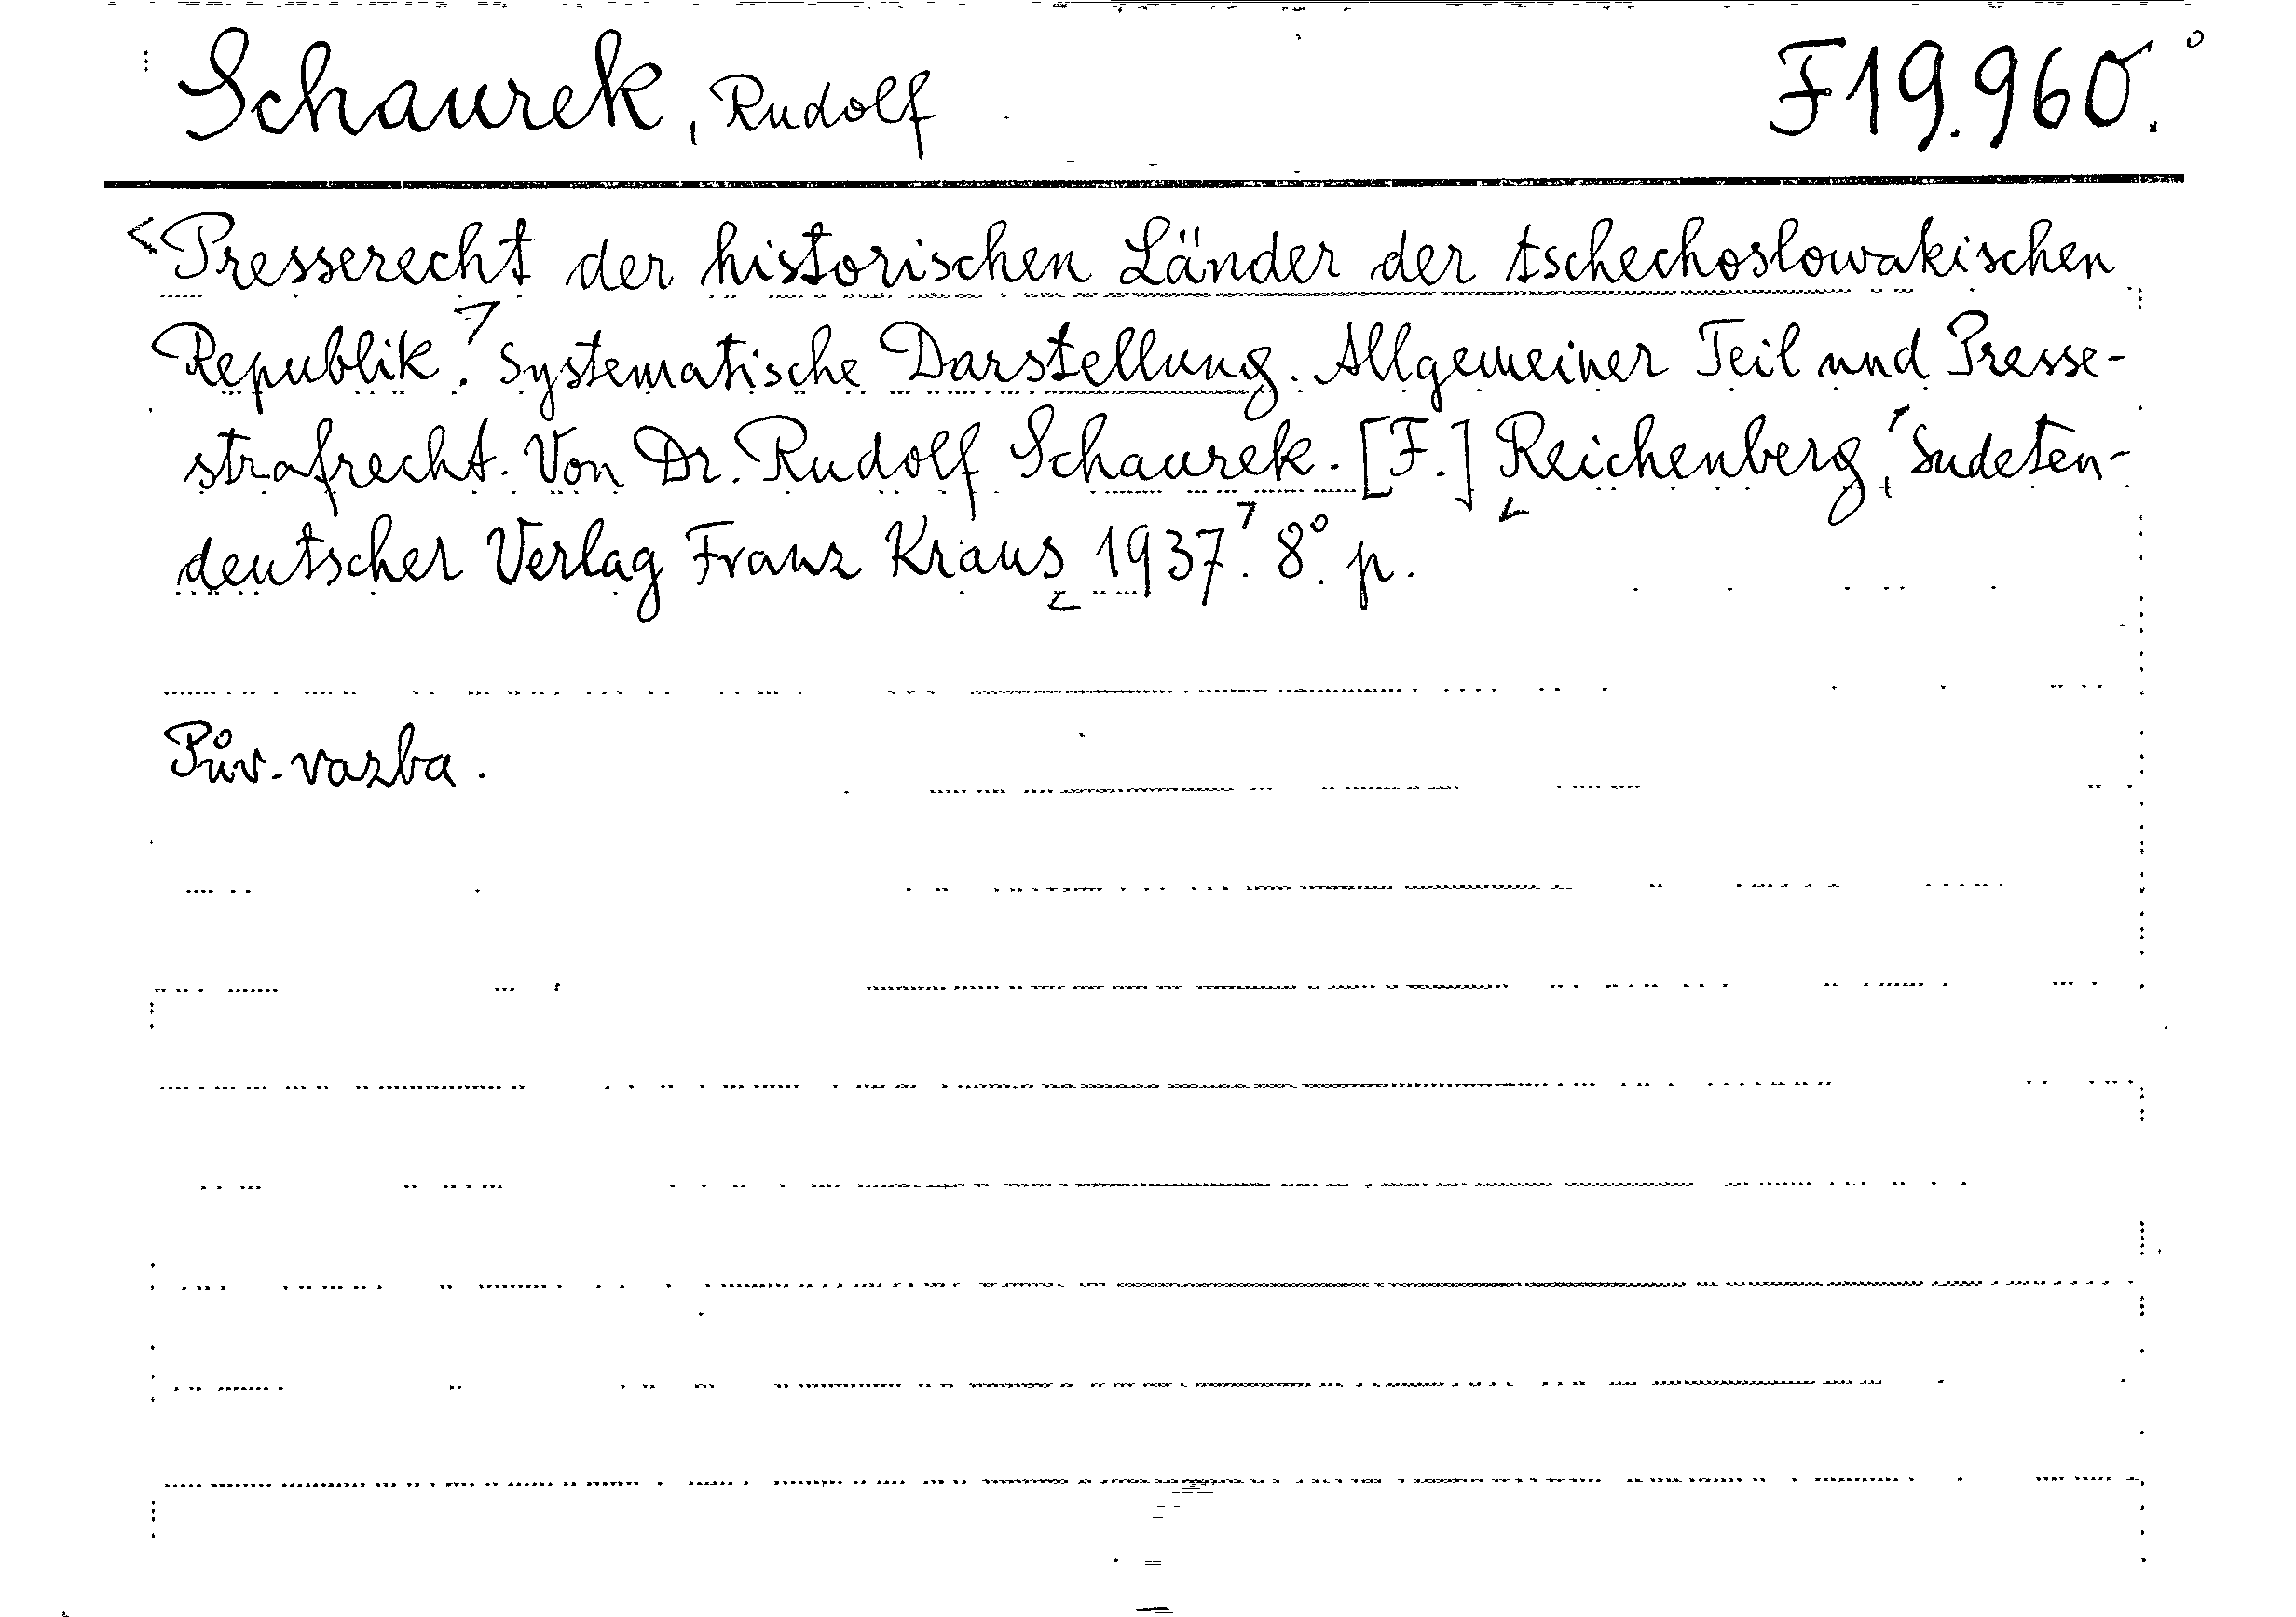 Schaurek, Rudolf F19.960.
Presserecht der historischen Länder der tschechoslowakischen
Republik. Systematische Darstellung. Allgemeiner Teil und Presse-
strafrecht. Von Dr. Rudolf Schaurek. [F.] Reichenberg, Sudeten-
deutscher Verlag Franz Kraus 1937. 8°. p.
Pův. vazba.